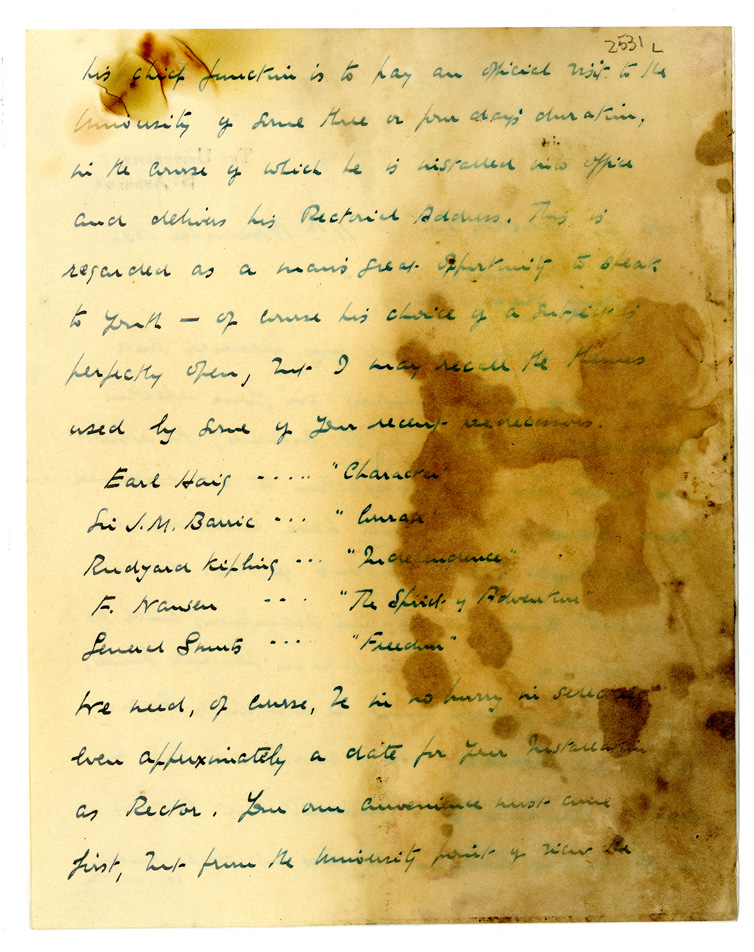 2531 L
his chief function is to pay an official visit to the
University of some three or four days duration,
in the course of which he is installed into office
and delivers his Rectorial Address. This is
regarded as a man's great opportunity to speak
to Youth — of course his choice of a subject is
perfectly open, but I may recall the themes
used by some of your recent predecessors.
Earl Haig ..... "Character"
Sir J.M. Barrie ... "Courage"
Rudyard Kipling ... "Independence"
F. Nansen .... "The Spirit of Adventure"
General Smuts .... "Freedom"
We need, of course, be in no hurry in selecting
even approximately a date for your Installation
as Rector. Your own convenience must come
first, but from the University point of view the